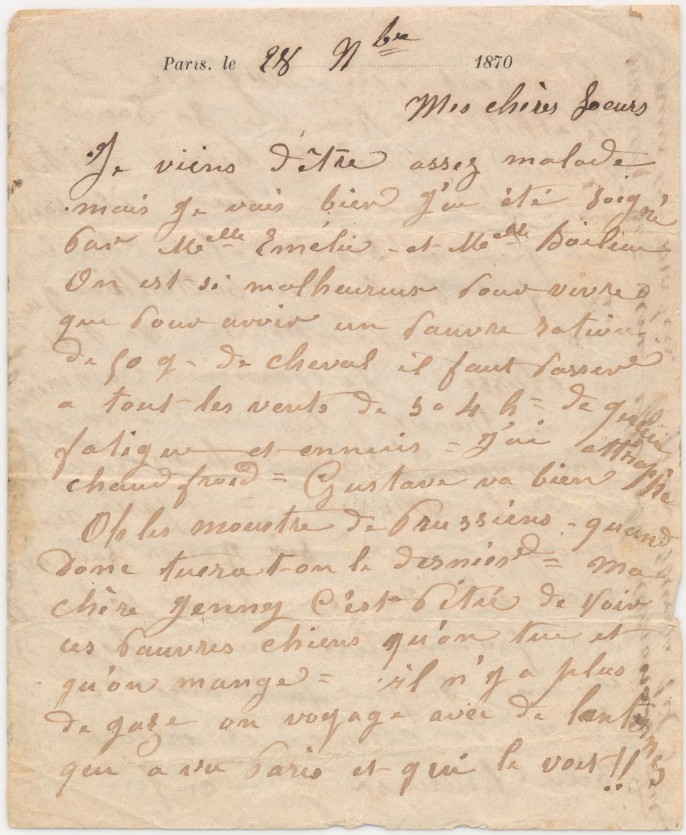 Paris, le 28 Nbre 1870
Mes chères Soeurs
Je viens d'être assez malade
mais je vais bien j'ai été soigné
par Melle Emélie et Melle
On est si malheureux pour vivre
que pour avoir un pauvre ration
de 50 g- de cheval il faut passer
a tout les vents de 3 a 4 h = de queue
fatigue et ennuis = J'ai attrappé
chaud froid = Gustave va bien
Oh les monstre de Prussiens - quand
donc tuera t-on le dernier = Ma
chère Jenney C'est pitié de voir
ces pauvres chiens qu'on tue et
qu'on mange = il n'y a plus
de gaze on voyage avec de lenternes
qui a vu Paris et qui le voit !!